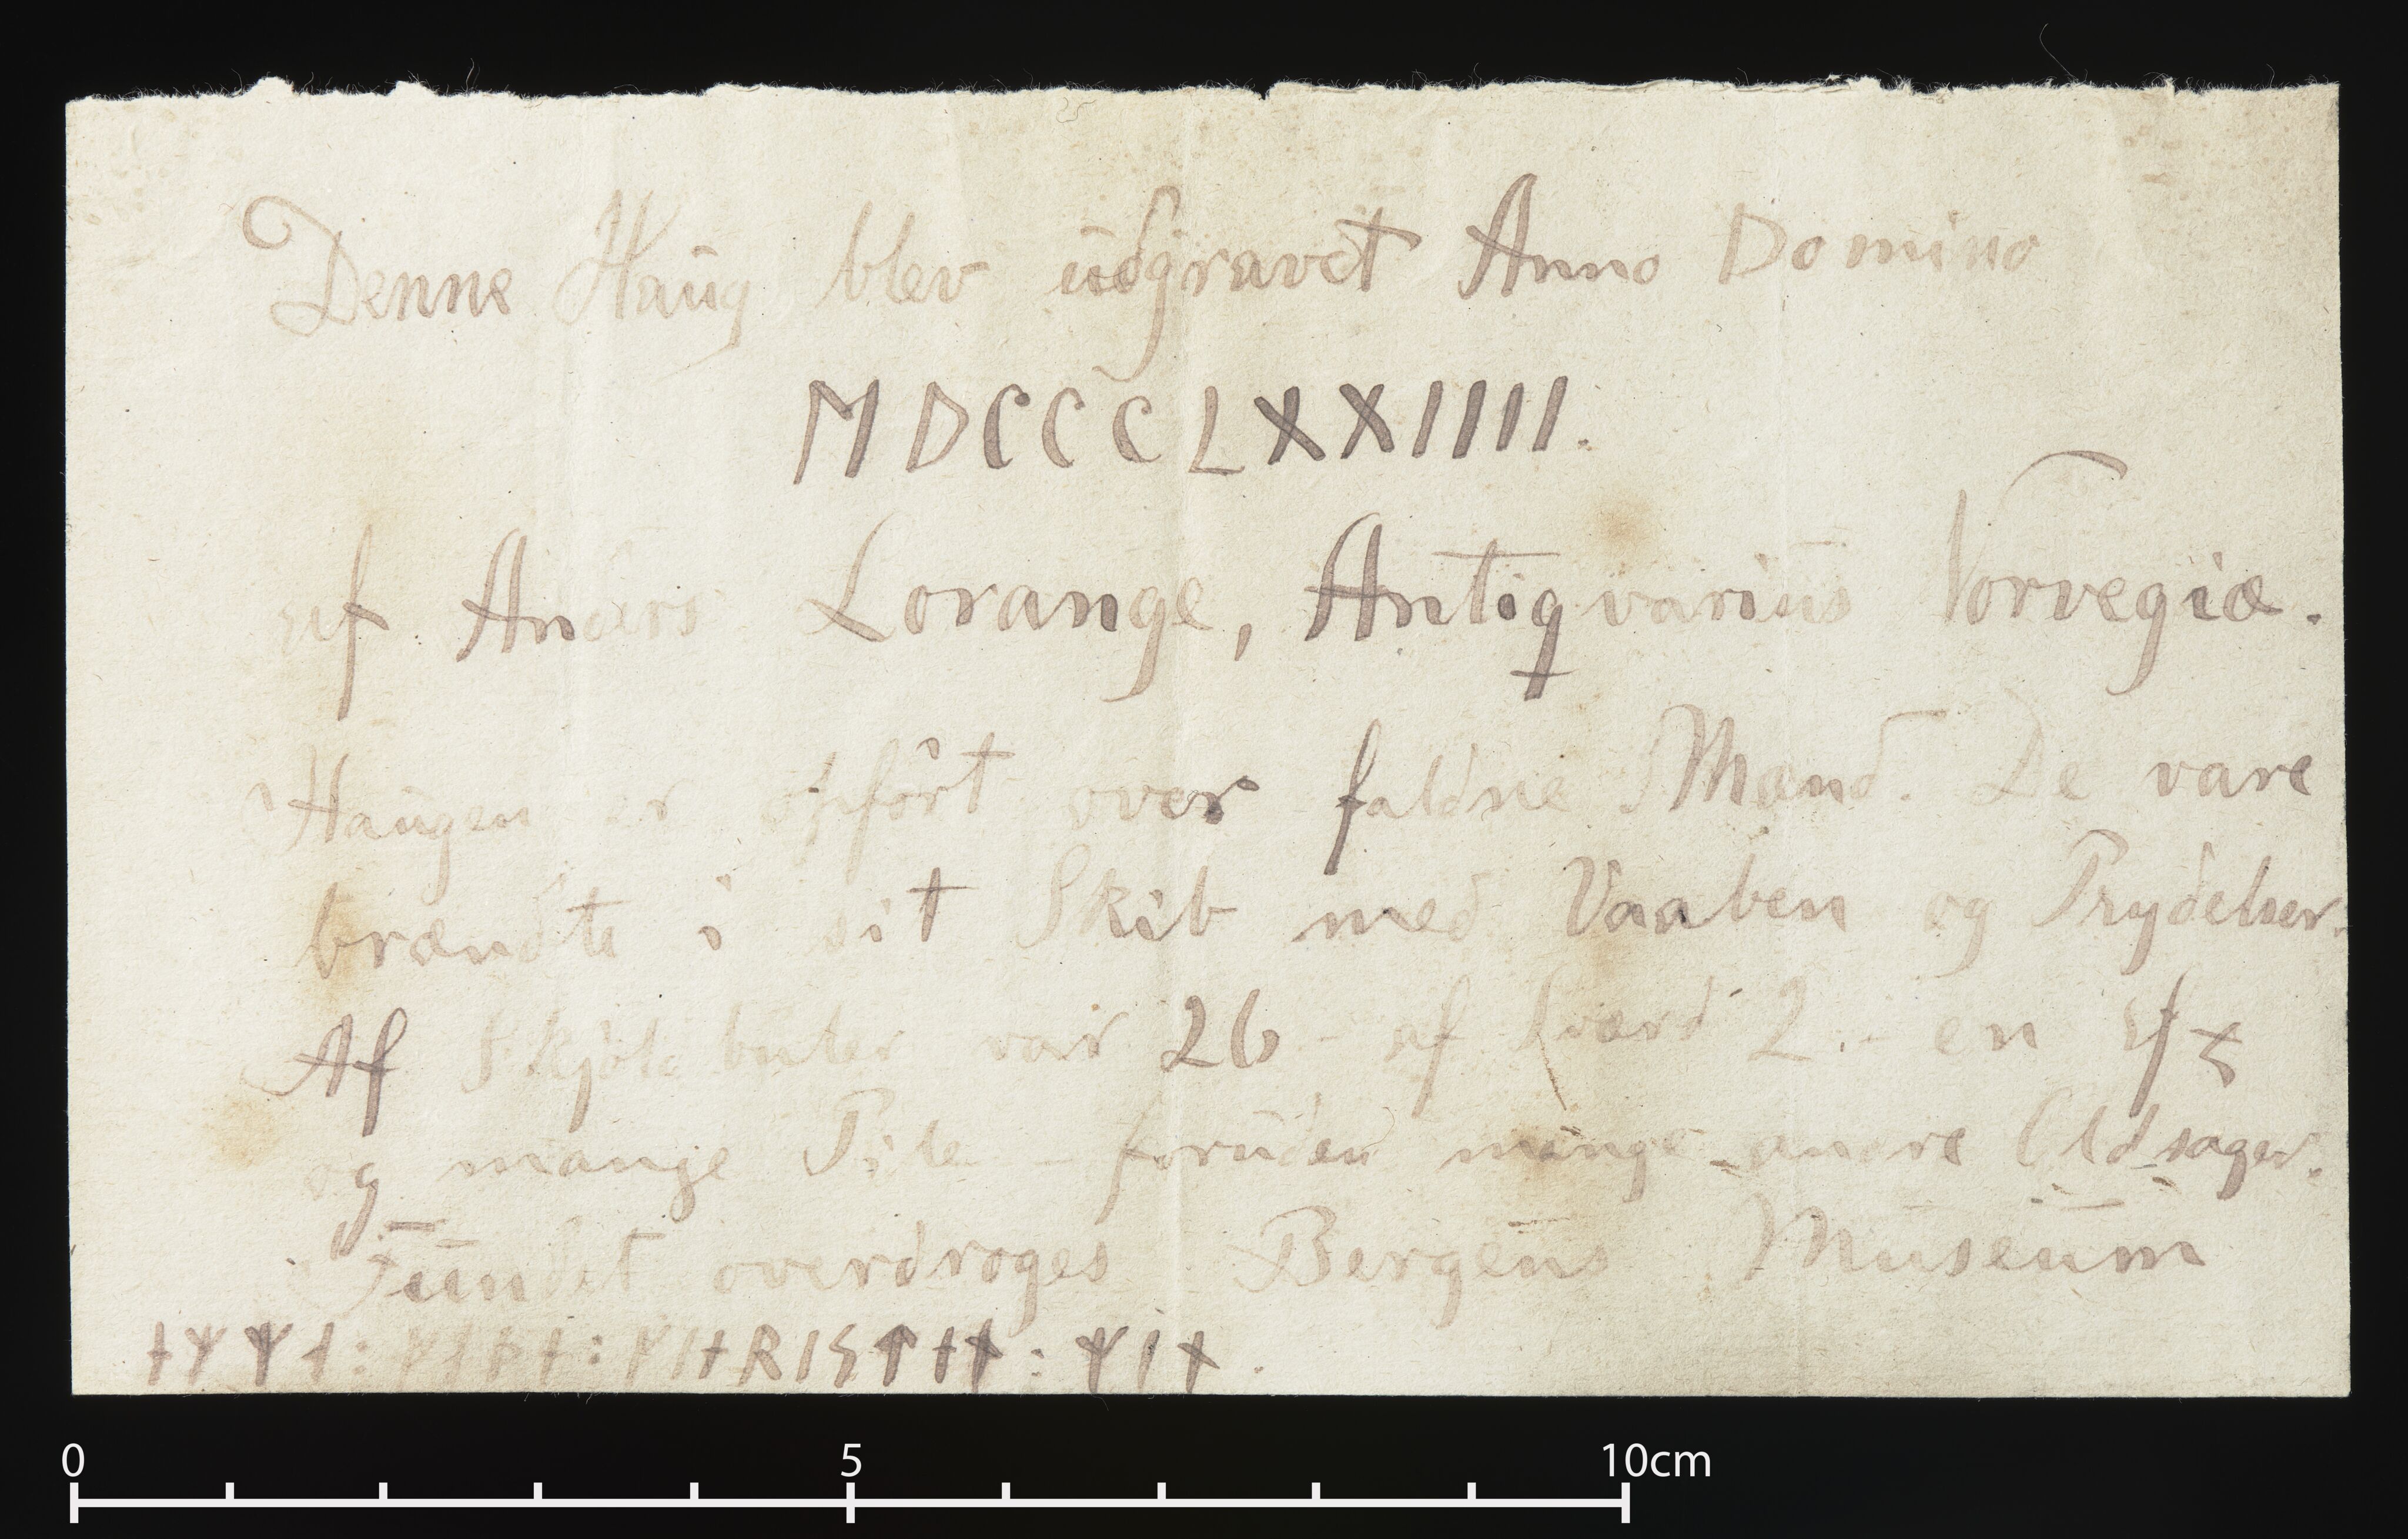 Denne Haug blev udgravet Anno Domino
MDCCCLXXIIII.
af Anders Lorange, Antiqvarius Norvegiæ.
Haugen er opført over faldne Mænd. De vare
brændte i sit Skib med Vaaben og Prydelser.
Af Skjoldbuler var 26 - af Sværd 2. - en Øx
og mange Pile - foruden mange andre Oldsager.
Fundet overdroges Bergens Museum
ᛅᛘᛘᛆ:ᚴᛆᚦᛅ:ᚴᛁᛅᚱᛁᛋᛏᛅᚾ:ᛘᛁᚾ.
0 5 10cm